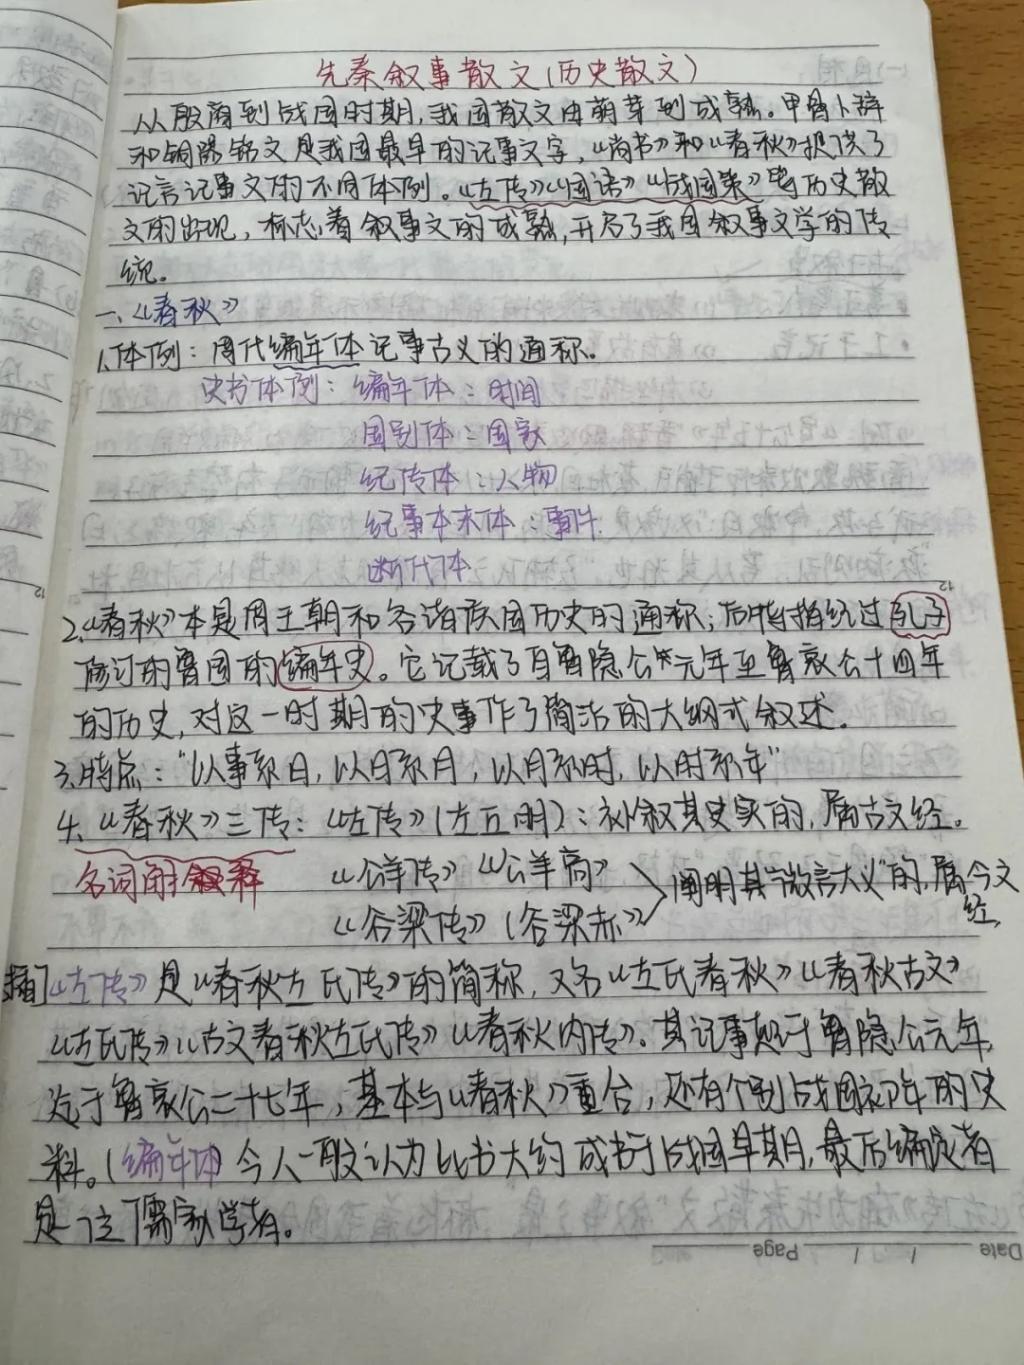 先秦叙事散文(历史散文)
从殷商到战国时期,我国散文由萌芽到成熟。甲骨卜辞
和铜器铭文是我国最早的记事文字,《尚书》和《春秋》提供了
记言记事文的不同体例。《左传》《国语》《战国策》等历史散
文的出现,标志着叙事文的成熟,开启了我国叙事文学的传
统。
一、《春秋》
1.体例:周代编年体记事古义的通称。
史书体例:编年体:时间
国别体:国家
纪传体:人物
纪事本末体:事件
断代体
2.《春秋》本是周王朝和各诸侯国历史的通称;后特指经过孔子
修订的鲁国的编年史。它记载了自鲁隐公元年至鲁哀公十四年
的历史,对这一时期的史事作了简洁的大纲式叙述。
3.特点:"以事系日,以日系月,以月系时,以时系年"
4.《春秋》三传:《左传》(左丘明):补叙其史实的,属古文经。
名词解释 《公羊传》《公羊高》
《谷梁传》(谷梁赤》 阐明其"微言大义"的,属今文
经
《左传》是《春秋左氏传》的简称,又名《左氏春秋》《春秋古文》
《左氏传》《古文春秋左氏传》《春秋内传》。其记事起于鲁隐公元年,
迄于鲁哀公二十七年,基本与《春秋》重合,还有个别战国初年的史
料。(编年体 今人一般认为此书大约成书于战国早期,最后编定者
是一位儒家学者。
Date / / Page